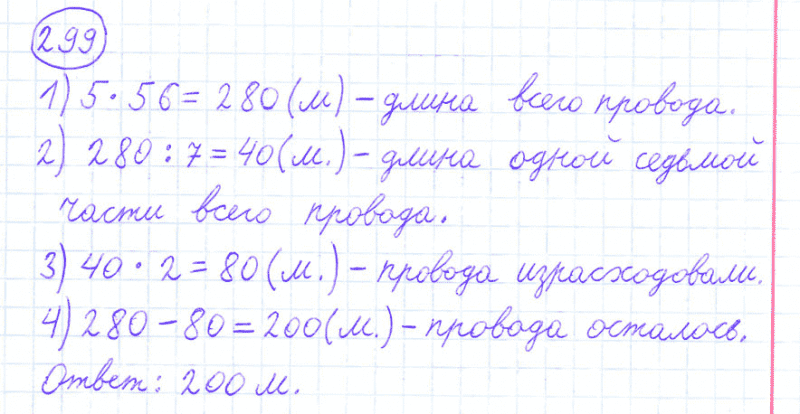 299
1) 5 · 56 = 280 (м) – длина всего провода.
2) 280 : 7 = 40 (м.) – длина одной седьмой
части всего провода.
3) 40 · 2 = 80 (м.) – провода израсходовали.
4) 280 – 80 = 200 (м.) – провода осталось.
Ответ: 200 м.